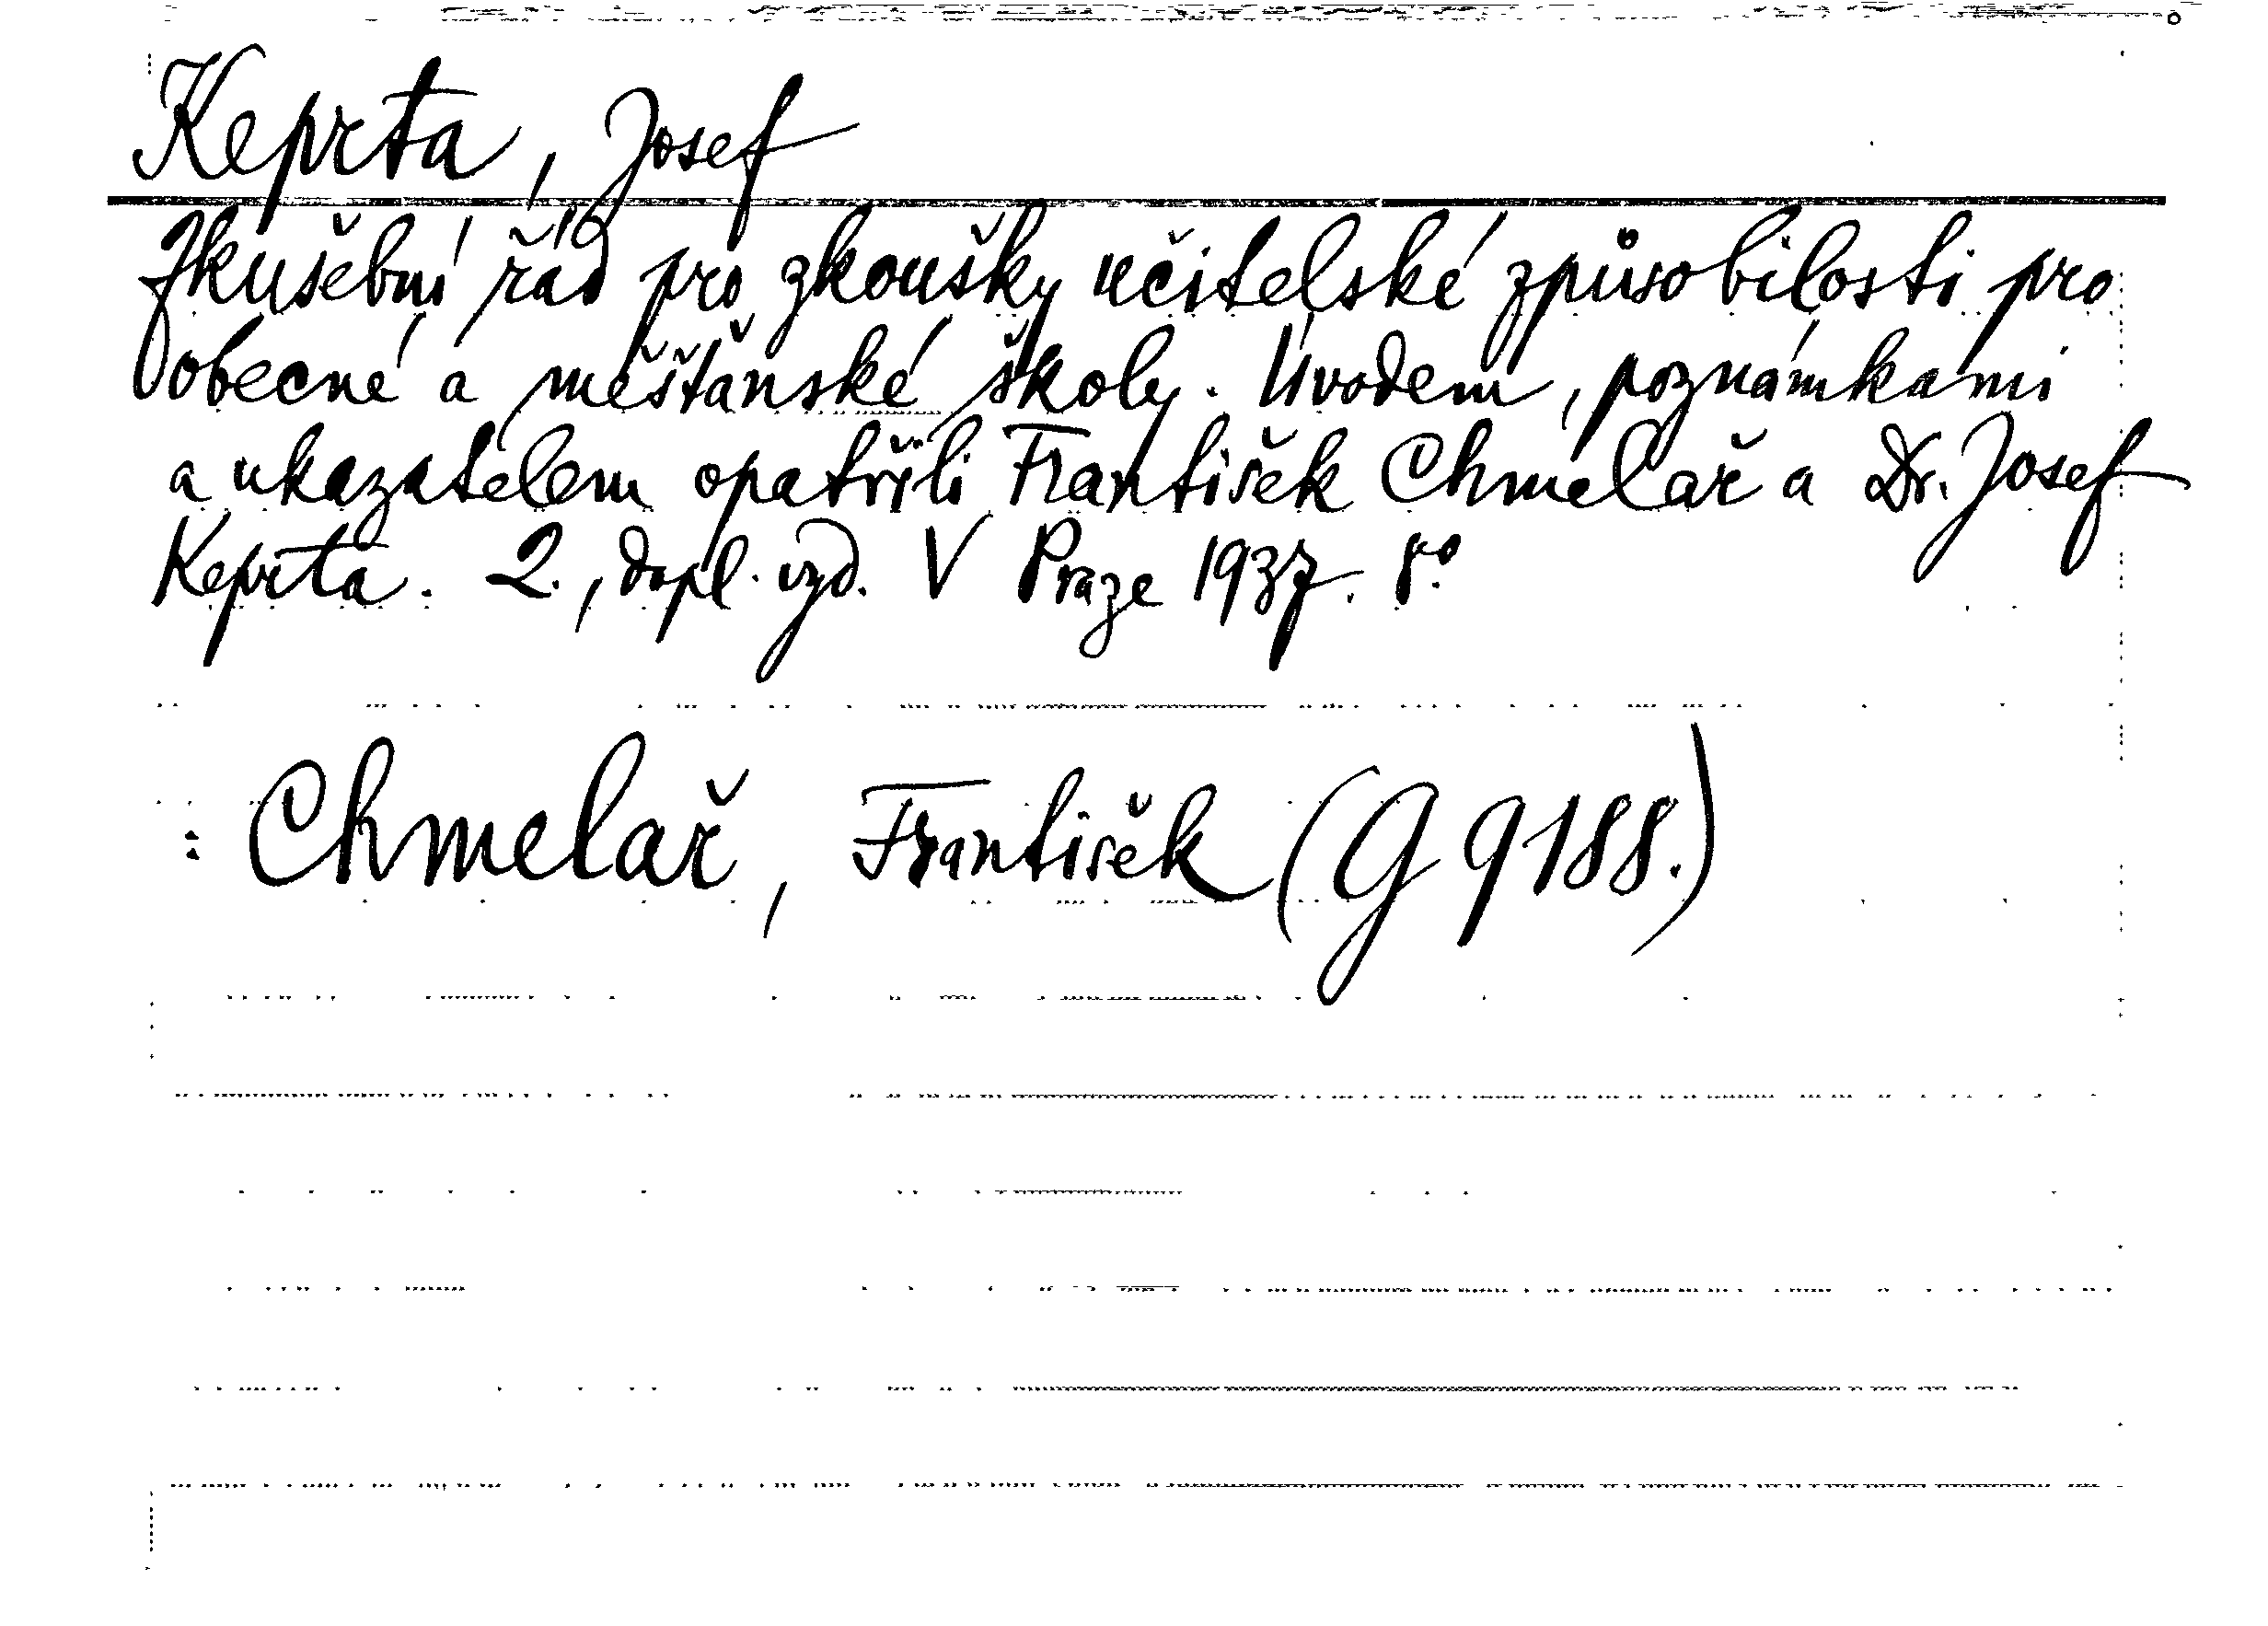 Keprta, Josef
Zkušební řád pro zkoušky učitelské způsobilosti pro
obecné a měšťanské školy. Úvodem, poznámkami
a ukazatelem opatřili František Chmelař a Dr. Josef
Keprta. 2., dopl. vyd. V Praze 1937. 8°.
Chmelař, František (G 9188.)